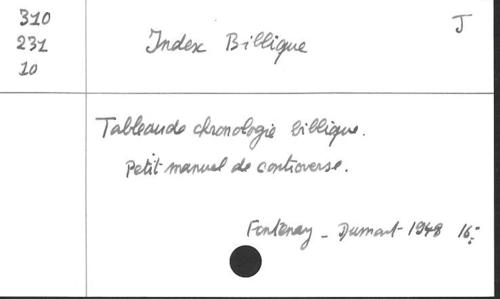 310
231
10
J
Index Billique
Tableau de chronologie billique.
Petit manuel de controverse.
Fontenay - Dumont 1948 16: